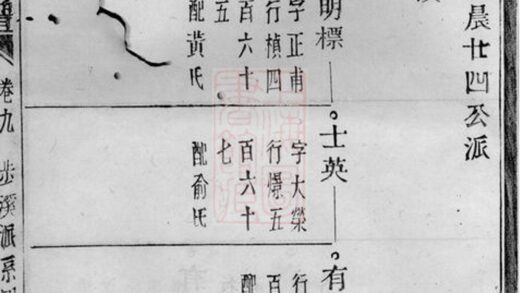 晨廿四公派
明標
字正甫
行楨四
百六十
五
配黃氏
士英
字大榮
行五
百六十
七
配俞氏
有
行
百
配
卷九 步溪派系
上海圖書館藏